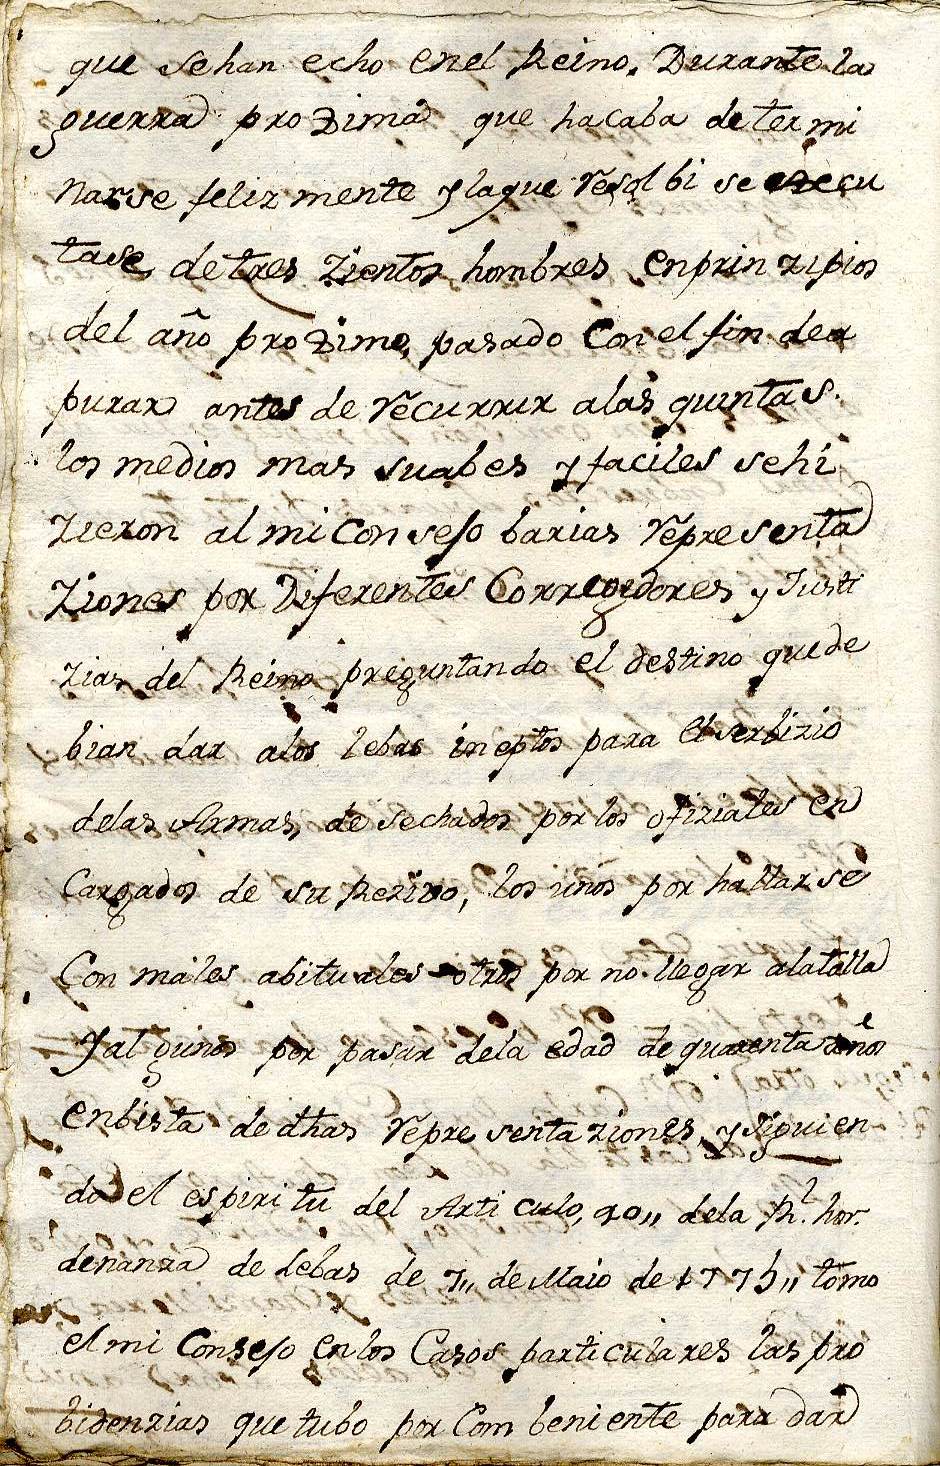 que sehan echo enel Reino. Durante la
guerra prozima que hacaba determi
narse feliz mente y laque resol bi se execu
tase de tres zientos hombres enprin zipios
del año prozimo, pasado con el fin dea
purar antes de recurrir alas quintas.
los medios mas suabes y faciles sehi
zieron al mi Consejo barias representa
ziones por Diferentes Corregedores y Justi
zias del Reino preguntando el destino quede
bian dar alos lebas ineptos para el serbizio
delas Armas, de sechados por los ofiziales en
Cargados de su Rezivo, los unos por hallarse
Con males abituales otros por no llegar alatalla
Y al gunos por pasar dela edad de quarenta años
enbista de dhas repre senta ziones, y Siguien
do el espiri tu del Arti culo, 40,, dela Rl. hor.
denanza de Lebas de 7,, de Maio de 1775,, tomo
el mi Consejo en los Casos particulares las pro
bidenzias que tubo por Com beniente para dar